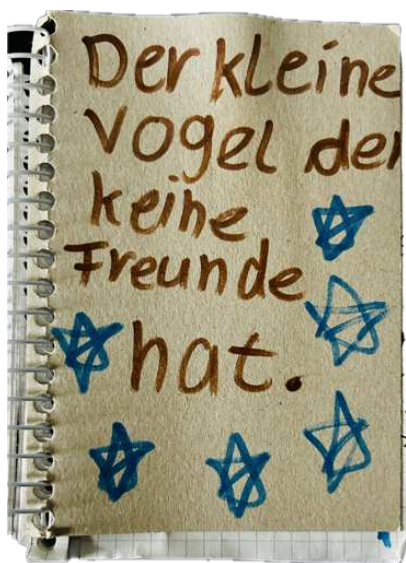 Der kleine
Vogel der
keine
Freunde
hat.